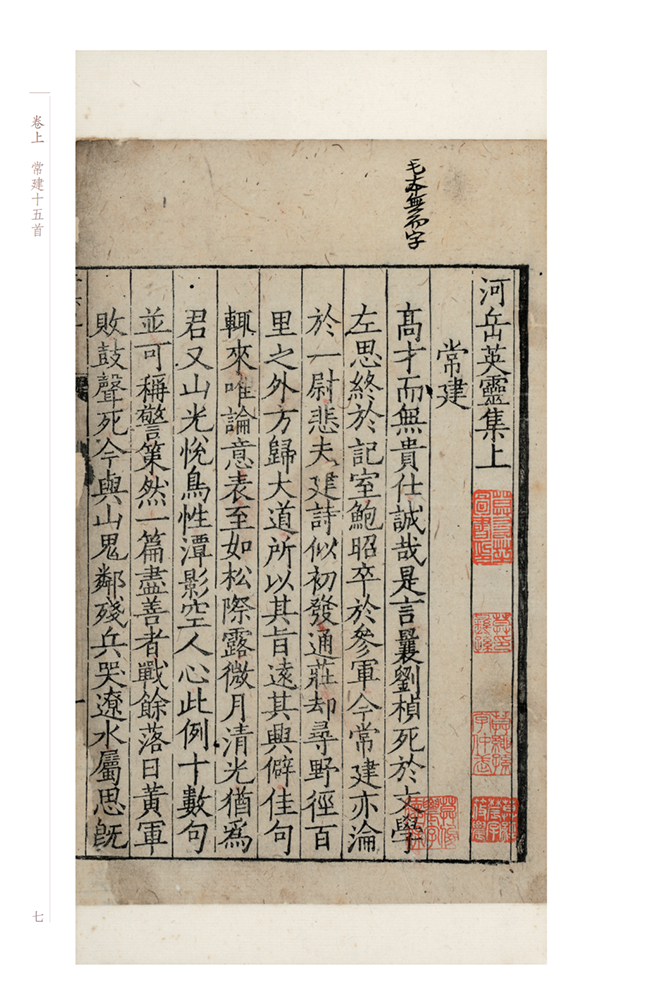 卷上　常建十五首
七
毛本無而字
河岳英靈集上
常建
髙才而無貴仕誠㢤是言曩劉楨死於文學
左思終於記室鮑昭卒於參軍今常建亦淪
於一尉悲夫建詩似初發通莊却尋野徑百
里之外方歸大道所以其旨遠其興僻佳句
輒來唯論意表至如松際露微月清光猶爲
君又山光悅鳥性潭影空人心此例十數句
並可稱警策然一篇盡善者戰餘落日黃軍
敗鼓聲死今與山鬼鄰殘兵哭遼水屬思旣